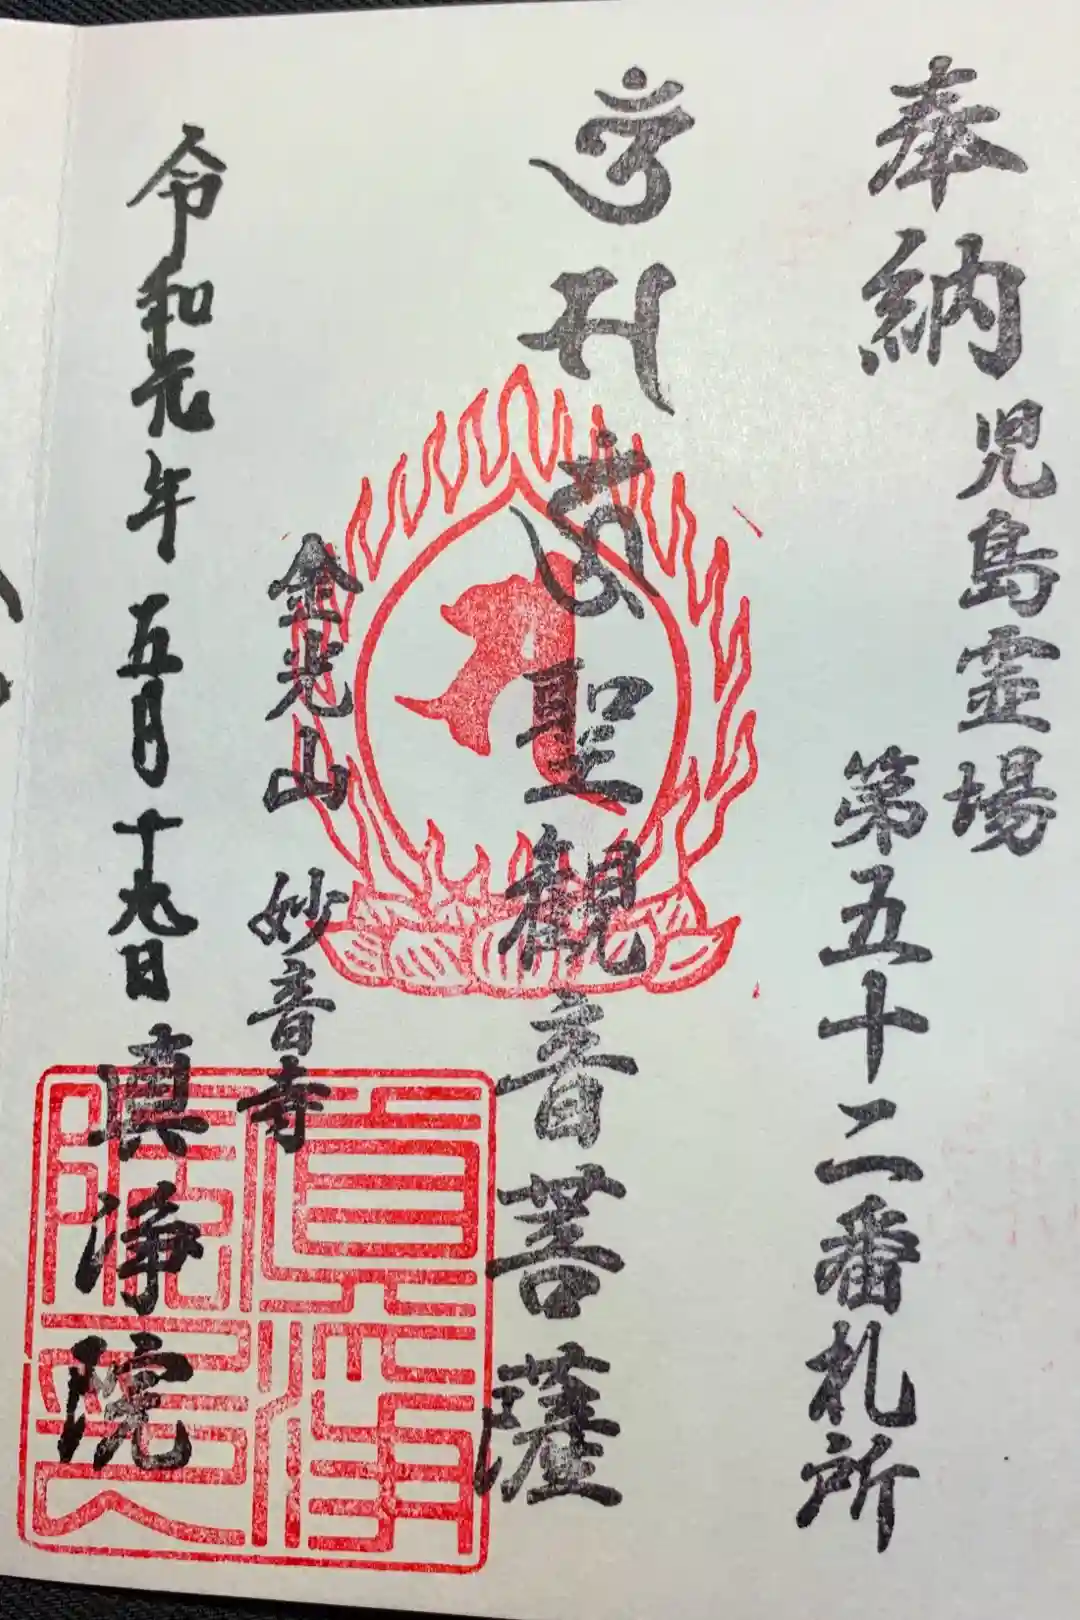 奉納
児島霊場
第五十二番札所
聖観音菩薩
金光山 妙音寺
真浄院
令和元年 五月十九日 真浄院